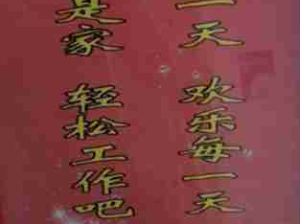 一天 欢乐每一天
是家 轻松工作吧